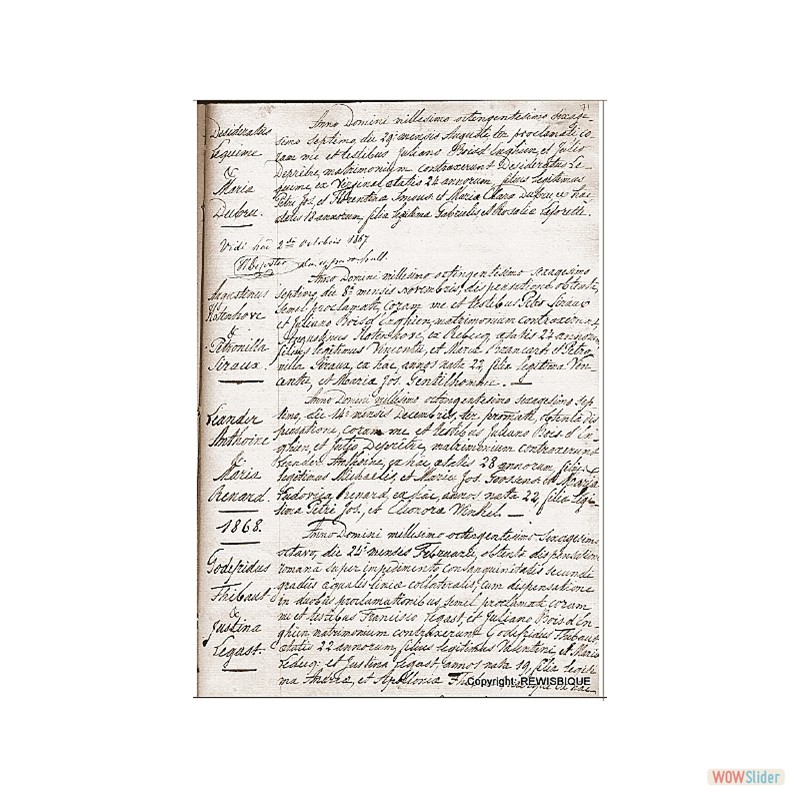 71
Anno Domini millesimo octingentesimo sexage-
simo septimo, die 29ª mensis Augusti, ter proclamati, co-
ram me et testibus Juliano Boisd'Enghien, et Julio
Deprêtre, matrimonium contraxerunt Desideratus Le-
quime, ex Virginal, ætatis 24 annorum, filius legitimus
Petri Jos. et Florentinæ et Maria Clara Dubru, ex hac
ætatis 18 annorum, filia legitima Gabrielis et Rosaliæ Laforette.
Desideratus
Lequime
&
Maria
Dubru.
Vidi hac 2ª Octobris 1867
Anno Domini millesimo octingentesimo sexagesimo
septimo, die 8ª mensis novembris, dispensatione obtenta,
semel proclamati, coram me et testibus Petro Siraux
et Juliano Boisd'Enghien, matrimonium contraxerunt
Augustinus Hotenhove, ex Rebecq, ætatis 22 annorum
filius legitimus Vincentii, et Mariæ et Petro-
nilla Siraux, ex hac, annos nata 22, filia legitima Vin-
centii, et Mariæ Jos. Gentilhomme.
Augustinus
Hotenhove
&
Petronilla
Siraux.
Anno Domini millesimo octingentesimo sexagesimo sep-
timo, die 14ª mensis Decembris, ter proclamati, obtenta dis-
pensatione, coram me et testibus Juliano Bois d'En-
ghien, et Julio Deprêtre, matrimonium contraxerunt
Leander Anthoine, ex hac, ætatis 28 annorum, filius
legitimus Michaelis, et Mariæ Jos. et Maria
Ludovica Renard, ex hac, annos nata 22, filia legi-
tima Petri Jos, et Eleonora Winkel.
Leander
Anthoine
&
Maria
Renard.
1868.
Anno Domini millesimo octingentesimo sexagesimo
octavo, die 25ª mensis Februarii, obtenta dispensatione
romana super impedimento consanguinitatis secundi
gradus æqualis lineæ collateralis, cum dispensatione
in duobus proclamationibus, semel proclamati, coram
me et testibus Francisco Legast, et Juliano Bois d'En-
ghien, matrimonium contraxerunt Godefridus Thibaut
ætatis 22 annorum, filius legitimus Valentini, et Mariæ
Ledecq: et Justina Legast, annos nata 19, filia legiti-
ma Andreæ, et Apolloniæ
Godefridus
Thibaut
&
Justina
Legast.
Copyright: REWISBIQUE
WOWSlider